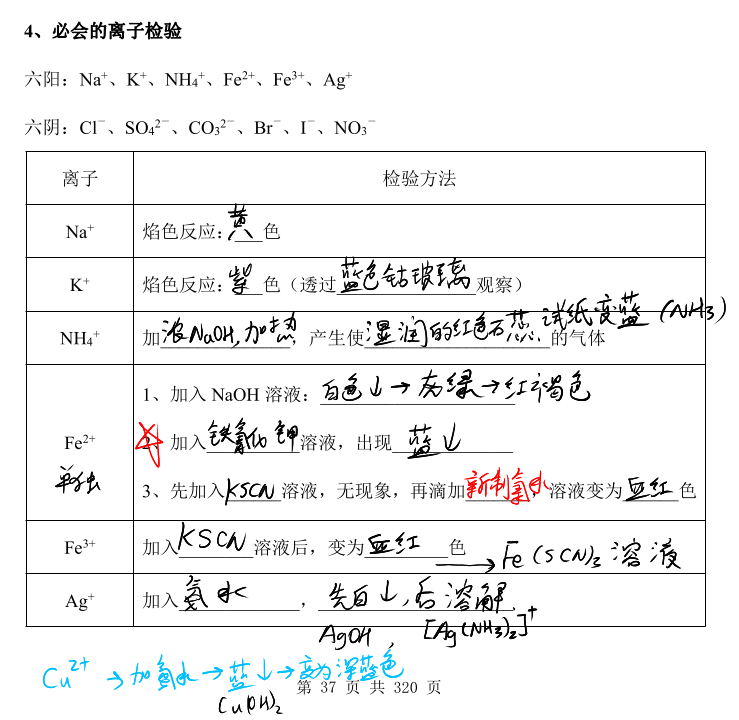 4、必会的离子检验
六阳：Na⁺、K⁺、NH₄⁺、Fe²⁺、Fe³⁺、Ag⁺
六阴：Cl⁻、SO₄²⁻、CO₃²⁻、Br⁻、I⁻、NO₃⁻
离子 检验方法
Na⁺ 焰色反应：黄色
K⁺ 焰色反应：紫色（透过蓝色钴玻璃观察）
NH₄⁺ 加浓NaOH,加热，产生使湿润的红色石蕊试纸变蓝的气体 (NH3)
1、加入 NaOH 溶液：白色↓→灰绿→红褐色
Fe²⁺ 2、加入铁氰化钾溶液，出现蓝↓
单独
3、先加入KSCN溶液，无现象，再滴加新制氯水，溶液变为血红色
Fe³⁺ 加入KSCN溶液后，变为血红色 →Fe(SCN)₃溶液
Ag⁺ 加入氨水，先白↓,后溶解
AgOH , [Ag(NH₃)₂]⁺
Cu²⁺→加氨水→蓝↓→变为深蓝色
Cu(OH)₂
第 37 页 共 320 页